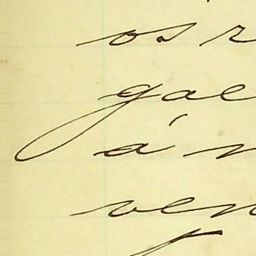 os r
gae
á n
ven